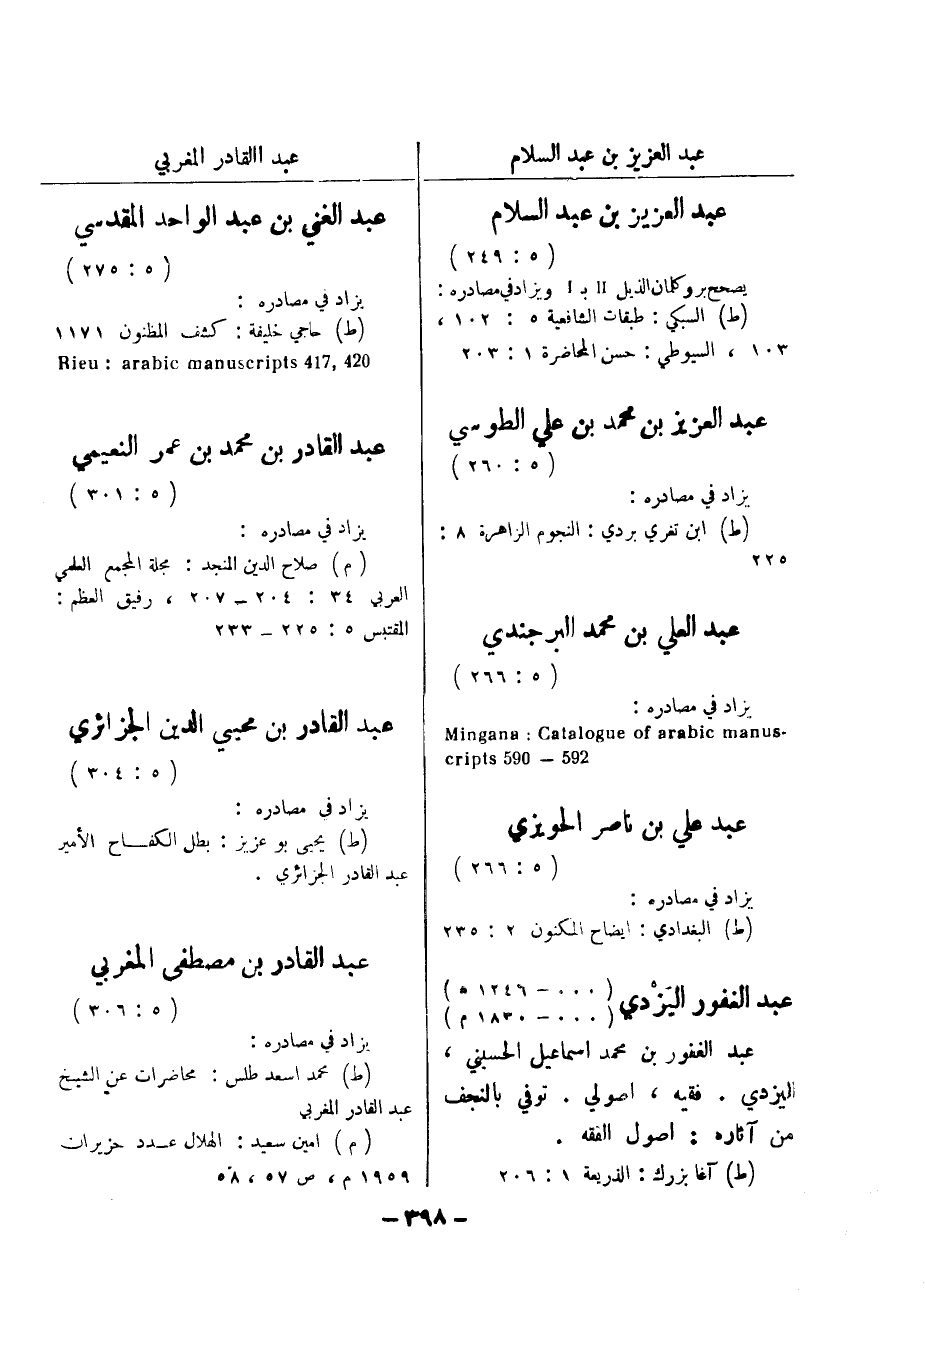 عبد العزيز بن عبد السلام
عبد العزيز بن عبد السلام
( ٥ : ٢٤٩ )
يصحح بروكلمان الذيل II بـ I ويزاد في مصادره :
(ط) السبكي : طبقات الشافعية ٥ : ١٠٢ ،
١٠٣ ، السيوطي : حسن المحاضرة ١ : ٢٠٣
عبد العزيز بن محمد بن علي الطوسي
( ٥ : ٢٦٠ )
يزاد في مصادره :
(ط) ابن تغري بردي : النجوم الزاهرة ٨ :
٢٢٥
عبد العلي بن محمد البرجندي
( ٥ : ٢٦٦ )
يزاد في مصادره :
Mingana : Catalogue of arabic manus-
cripts 590 — 592
عبد علي بن ناصر الحويزي
( ٥ : ٢٦٦ )
يزاد في مصادره :
(ط) البغدادي : ايضاح المكنون ٢ : ٢٣٥
عبد الغفور اليَزْدي ( ٠٠٠ - ١٢٤٦ ه )
( ٠٠٠ - ١٨٣٠ م )
عبد الغفور بن محمد اسماعيل الحسيني ،
اليزدي . فقيه ، اصولي . توفي بالنجف
من آثاره : اصول الفقه .
(ط) آغا بزرك : الذريعة ١ : ٢٠٦
عبد االقادر المغربي
عبد الغني بن عبد الواحد المقدسي
( ٥ : ٢٧٥ )
يزاد في مصادره :
(ط) حاجي خليفة : كشف الظنون ١١٧١
Rieu : arabic manuscripts 417, 420
عبد القادر بن محمد بن عمر النعيمي
( ٥ : ٣٠١ )
يزاد في مصادره :
( م ) صلاح الدين المنجد : مجلة المجمع العلمي
العربي ٣٤ : ٢٠٤ – ٢٠٧ ، رفيق العظم :
المقتبس ٥ : ٢٢٥ – ٢٣٣
عبد القادر بن محيي الدين الجزائري
( ٥ : ٣٠٤ )
يزاد في مصادره :
(ط) يحيى بو عزيز : بطل الكفـــاح الأمير
عبد القادر الجزائري .
عبد القادر بن مصطفى المغربي
( ٥ : ٣٠٦ )
يزاد في مصادره :
(ط) محمد اسعد طلس : محاضرات عن الشيخ
عبد القادر المغربي
( م ) امين سعيد : الهلال عـــدد حزيران
١٩٥٩ م ، ص ٥٧ ، ٥٨
– ٣٩٨ –